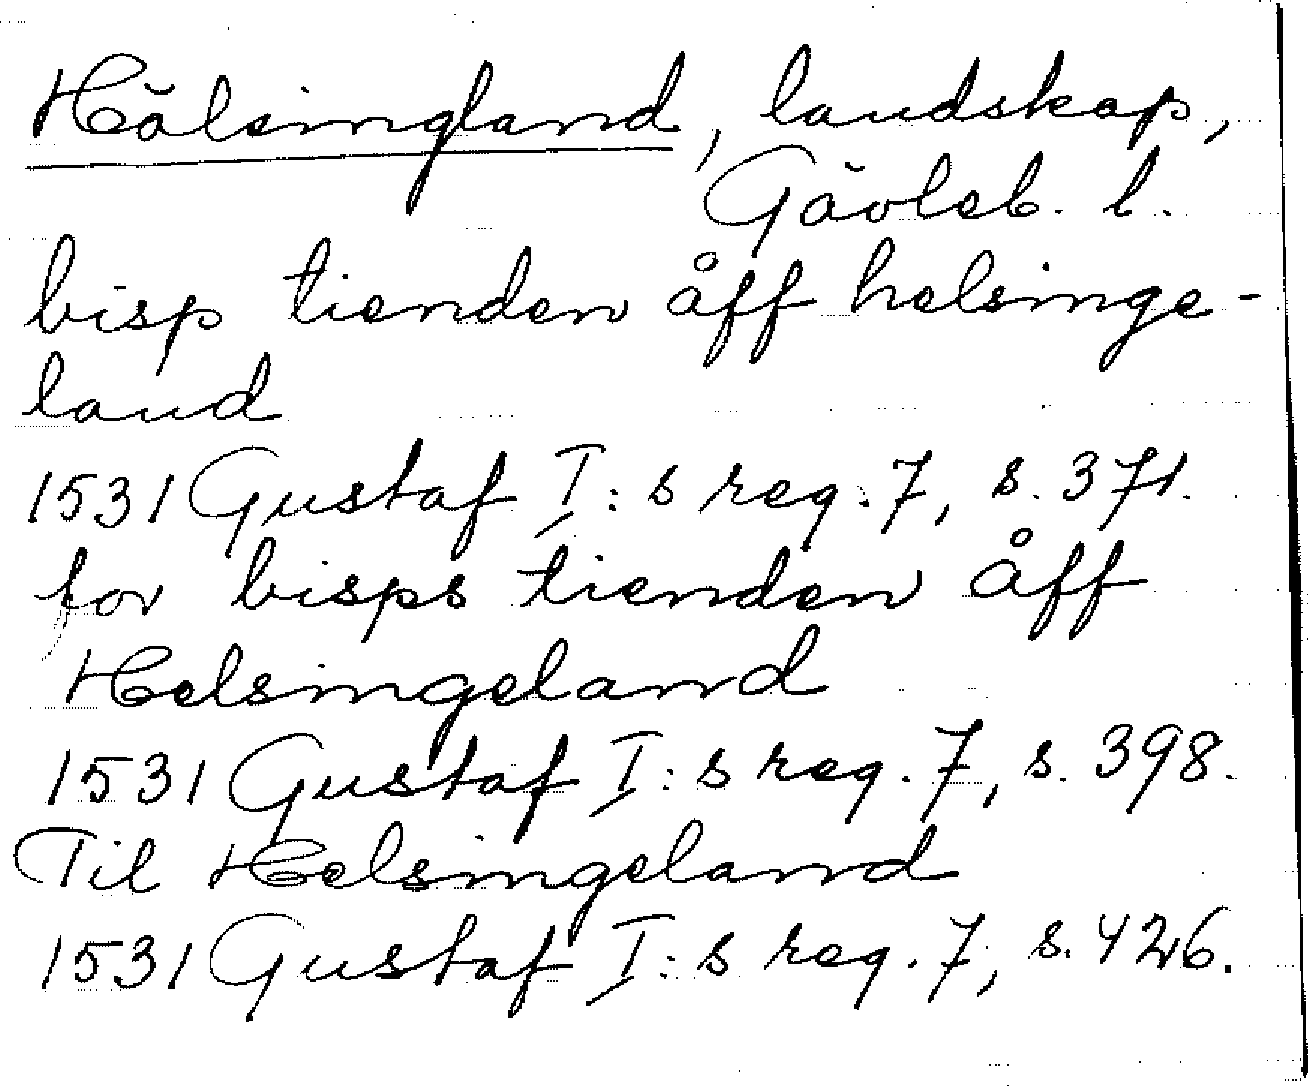 Hälsingland, landskap,
Gävleb. l.
bisp tienden åff helsinge-
land
1531 Gustaf I:s reg. 7, s. 371.
for bisps tienden åff
Helsingeland
1531 Gustaf I:s reg. 7, s. 398.
Til Helsingeland
1531 Gustaf I:s reg. 7, s. 426.